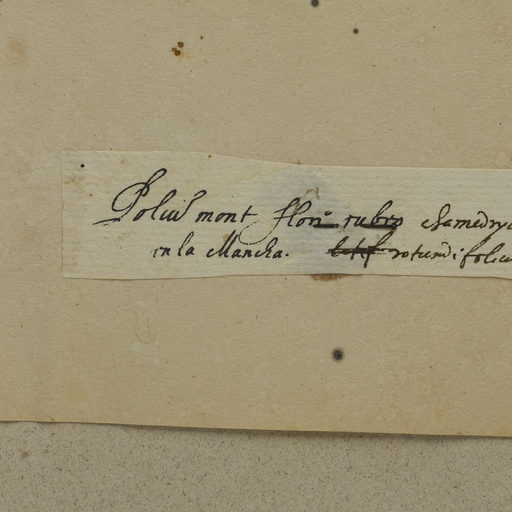 Poliū mont flore rubro chamedryo
in la Mancha. latif rotundifoliu